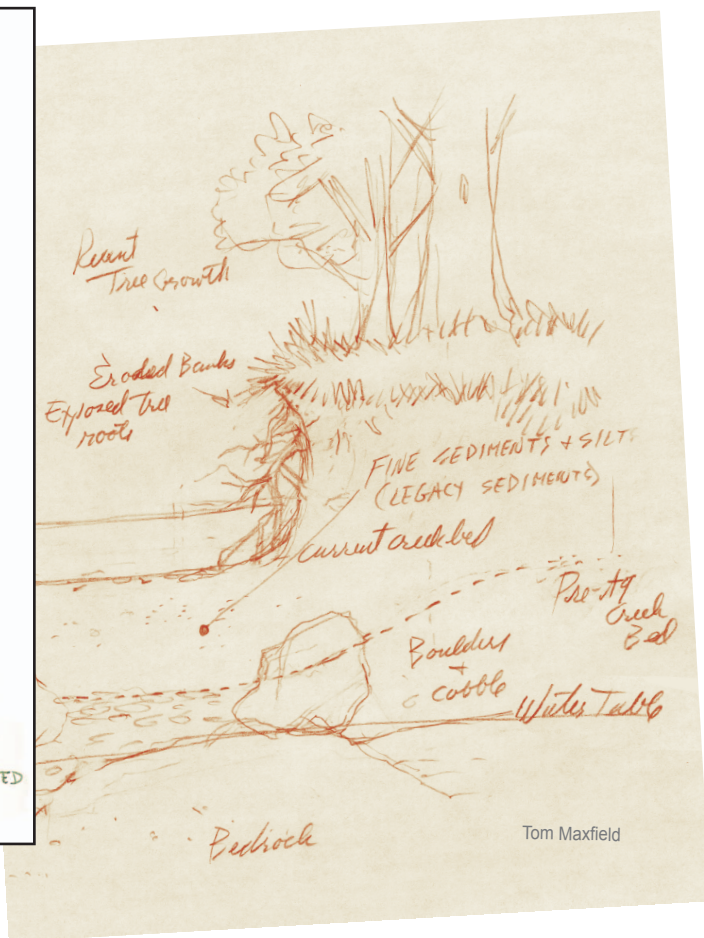 Recent
Tree Growth
Eroded Banks
Exposed tree
roots
FINE SEDIMENTS + SILTS
(LEGACY SEDIMENTS)
current creek bed
Pre-Ag
Creek
Bed
Boulders
+
cobble
Water Table
ED
Bedrock
Tom Maxfield